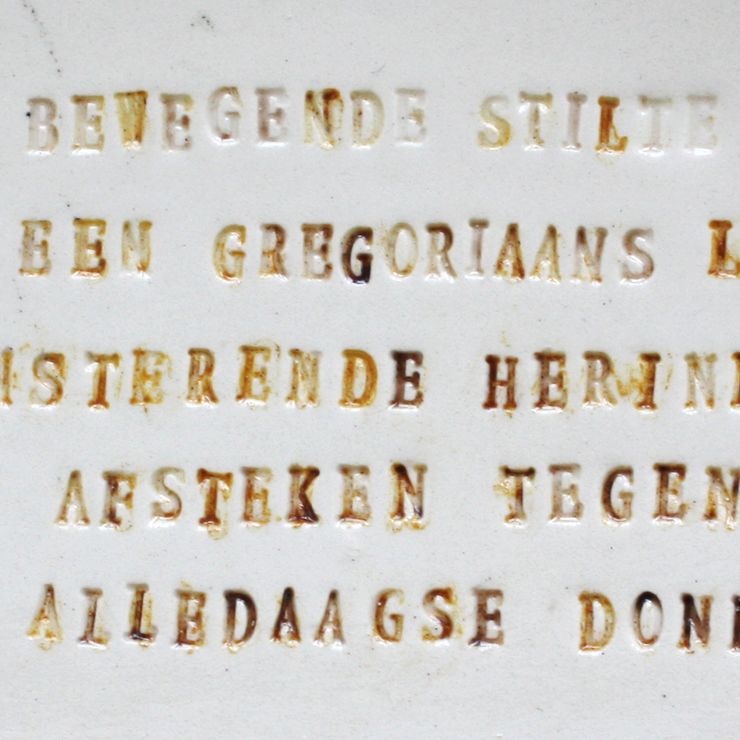 BEWEGENDE STILTE
EEN GREGORIAANS
AFSTEKEN TEGEN
ISTERENDE
ALLEDAAGSE